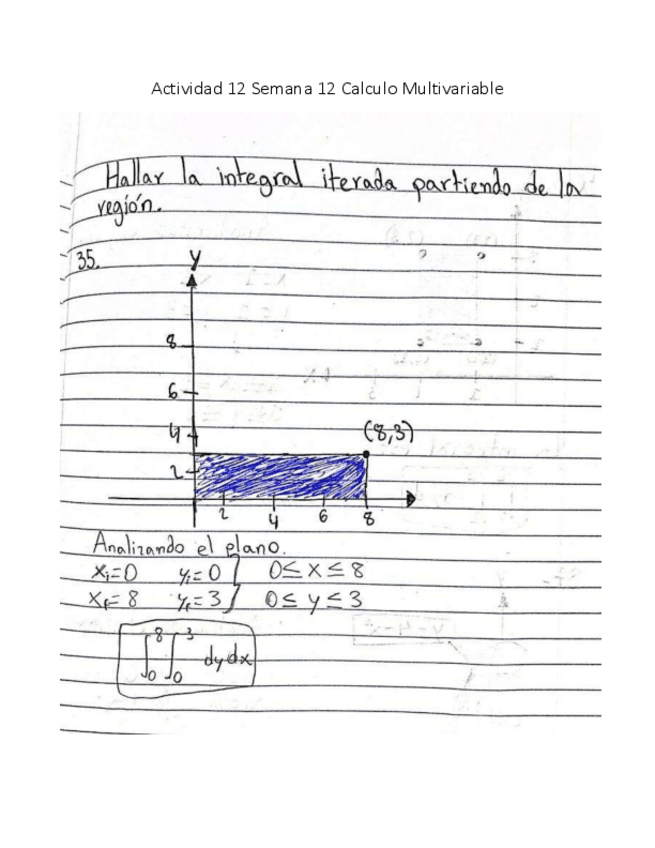 Actividad 12 Semana 12 Calculo Multivariable
Hallar la integral iterada partiendo de la
región.
35.
y
8
6
4
(8,3)
2
2 4 6 8
Analizando el plano.
xᵢ=0 yᵢ=0 } 0≤x≤8
x_f=8 y_f=3 } 0≤y≤3
∫₀⁸ ∫₀³ dy dx